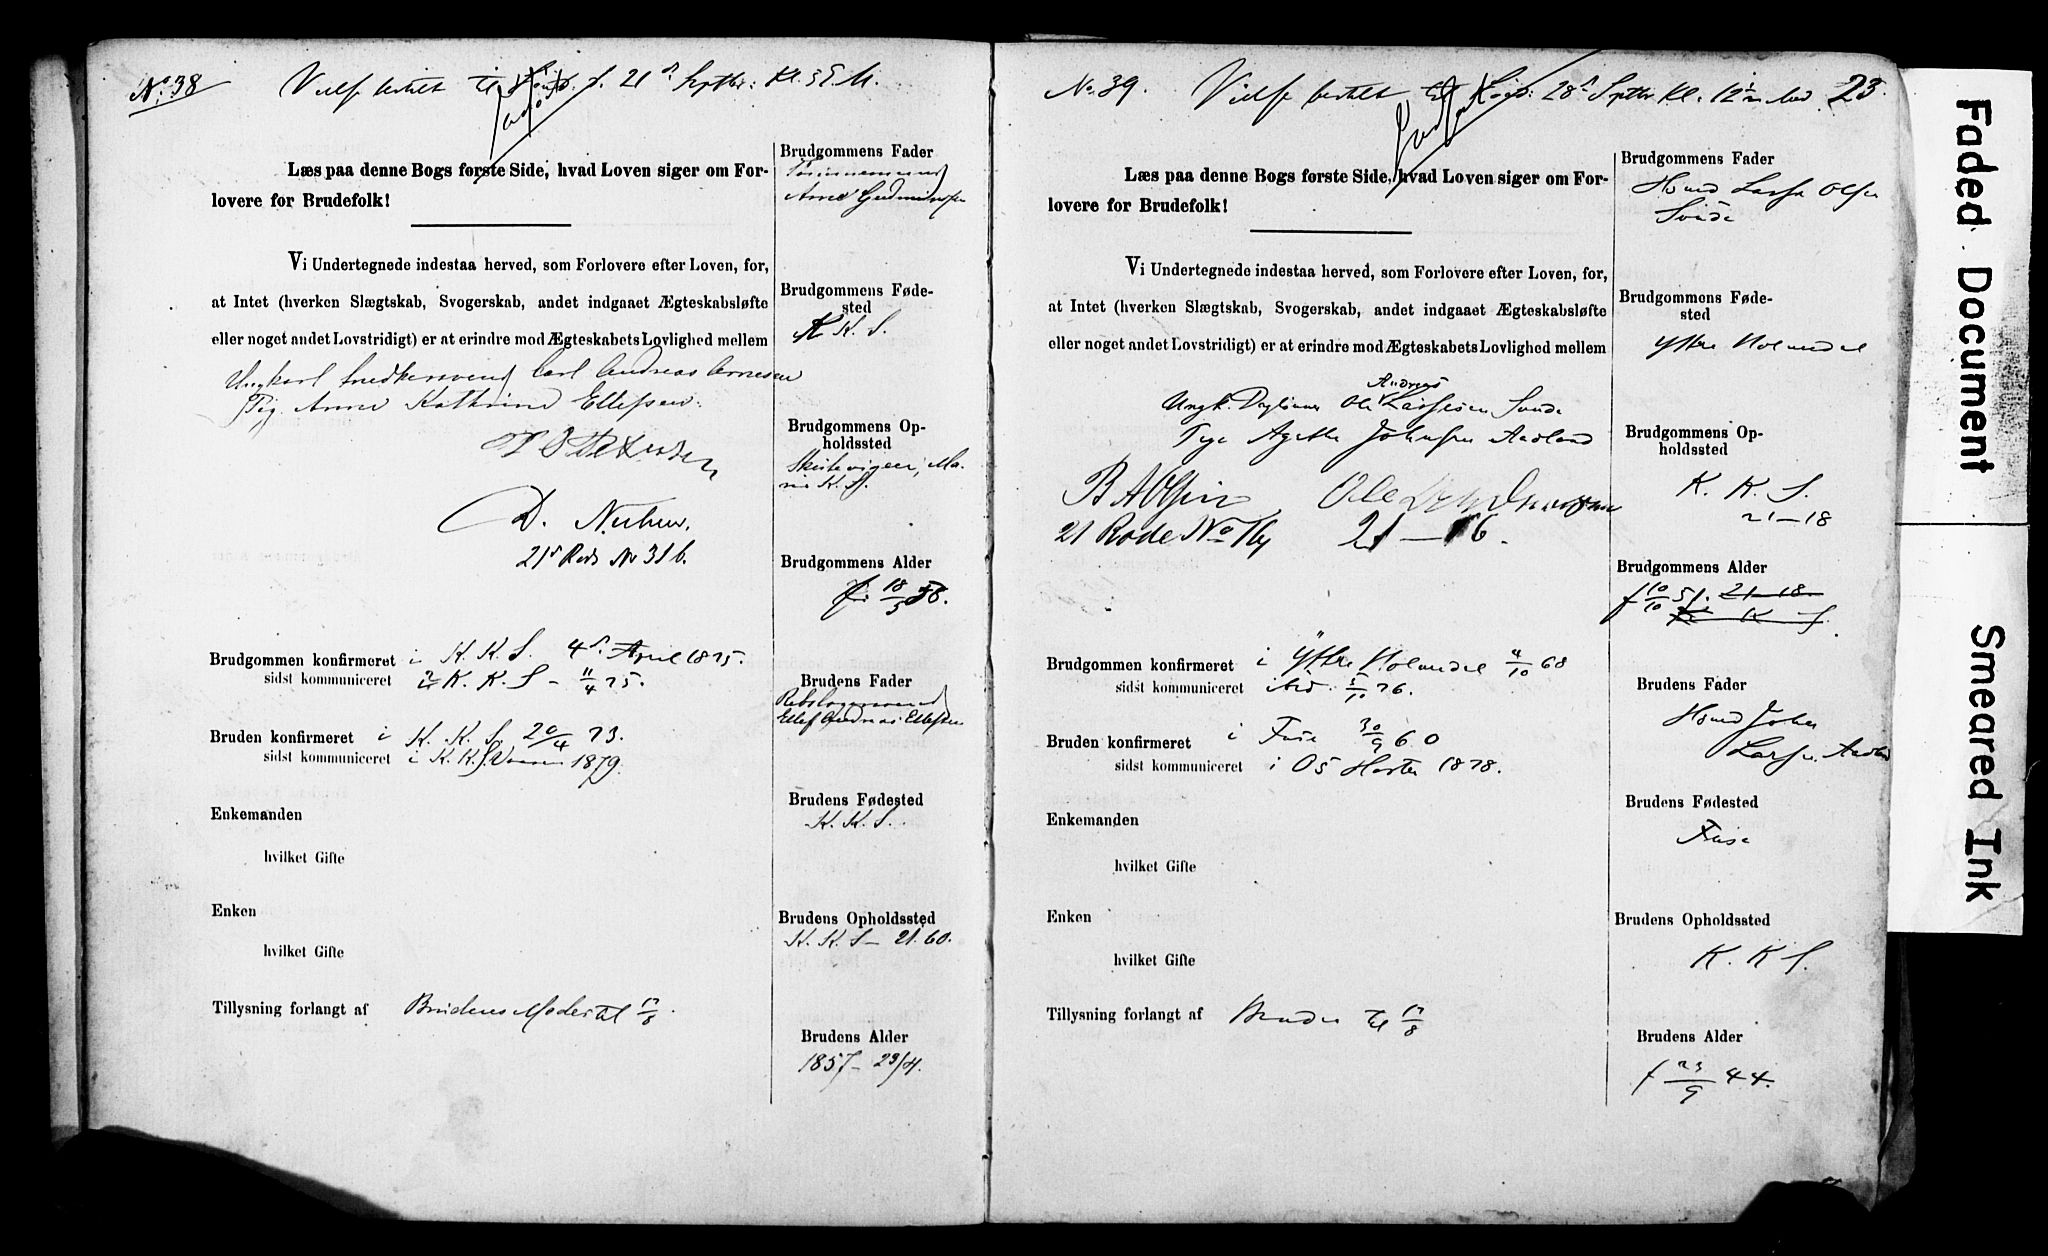 No 38
Vielse bestilt til d. 21 d. Septbr: Kl. 5 E.M.
Læs paa denne Bogs første Side, hvad Loven siger om For-
lovere for Brudefolk!
Vi Undertegnede indestaa herved, som Forlovere efter Loven, for,
at Intet (hverken Slægtskab, Svogerskab, andet indgaaet Ægteskabsløfte
eller noget andet Lovstridigt) er at erindre mod Ægteskabets Lovlighed mellem
Ungkarl Snedkersvend Carl Andreas Arnesen
Pig. Anne Kathrine Ellefsen.
D.
21d Rode No 31 b.
Brudgommen konfirmeret i K. K. S. 4d April 1875.
sidst kommuniceret i K. K. S - 11/4 75.
Bruden konfirmeret i K. K. S. 20/4 73.
sidst kommuniceret i K. K. S Vaaren 1879.
Enkemanden
hvilket Gifte
Enken
hvilket Gifte
Tillysning forlangt af Brudens Moder til 17/8.
Brudgommens Fader
Arne Gudmundsen
Brudgommens Føde-
sted
K. K. S.
Brudgommens Op-
holdssted
Skutevigen, Ma-
rie K. S.
Brudgommens Alder
f. 18/5 58.
Brudens Fader
Rebslagersvend
Ellef Andreas Ellefsen
Brudens Fødested
K. K. S.
Brudens Opholdssted
K. K. S - 21. 60.
Brudens Alder
1857 - 23/4.
No. 39.
Vielse bestilt til 28d Septbr Kl. 12½ 
23.
Læs paa denne Bogs første Side, hvad Loven siger om For-
lovere for Brudefolk!
Vi Undertegnede indestaa herved, som Forlovere efter Loven, for,
at Intet (hverken Slægtskab, Svogerskab, andet indgaaet Ægteskabsløfte
eller noget andet Lovstridigt) er at erindre mod Ægteskabets Lovlighed mellem
Andreas
Ungk. Ole Larsen Svide
Pige Agethe Johnsen Aadland
Ole
21 Rode No 21 - 16.
Brudgommen konfirmeret i Yttre Holmedal 4/10 68
sidst kommuniceret ibid. 5/10 76.
Bruden konfirmeret i Fuse 30/9 60
sidst kommuniceret i Os Høsten 1878.
Enkemanden
hvilket Gifte
Enken
hvilket Gifte
Tillysning forlangt af Bruden til 17/8
Brudgommens Fader
Hsmd Lasse Olsen
Svide
Brudgommens Føde-
sted
Yttre Holmedal
Brudgommens Op-
holdssted
K. K. S.
21-18
Brudgommens Alder
f 10/10 51. 21-18
K S.
Brudens Fader
Hsmd John
Larsen Aadland
Brudens Fødested
Fuse
Brudens Opholdssted
K. K S.
Brudens Alder
f 23/9 44.
Faded Document
Smeared Ink